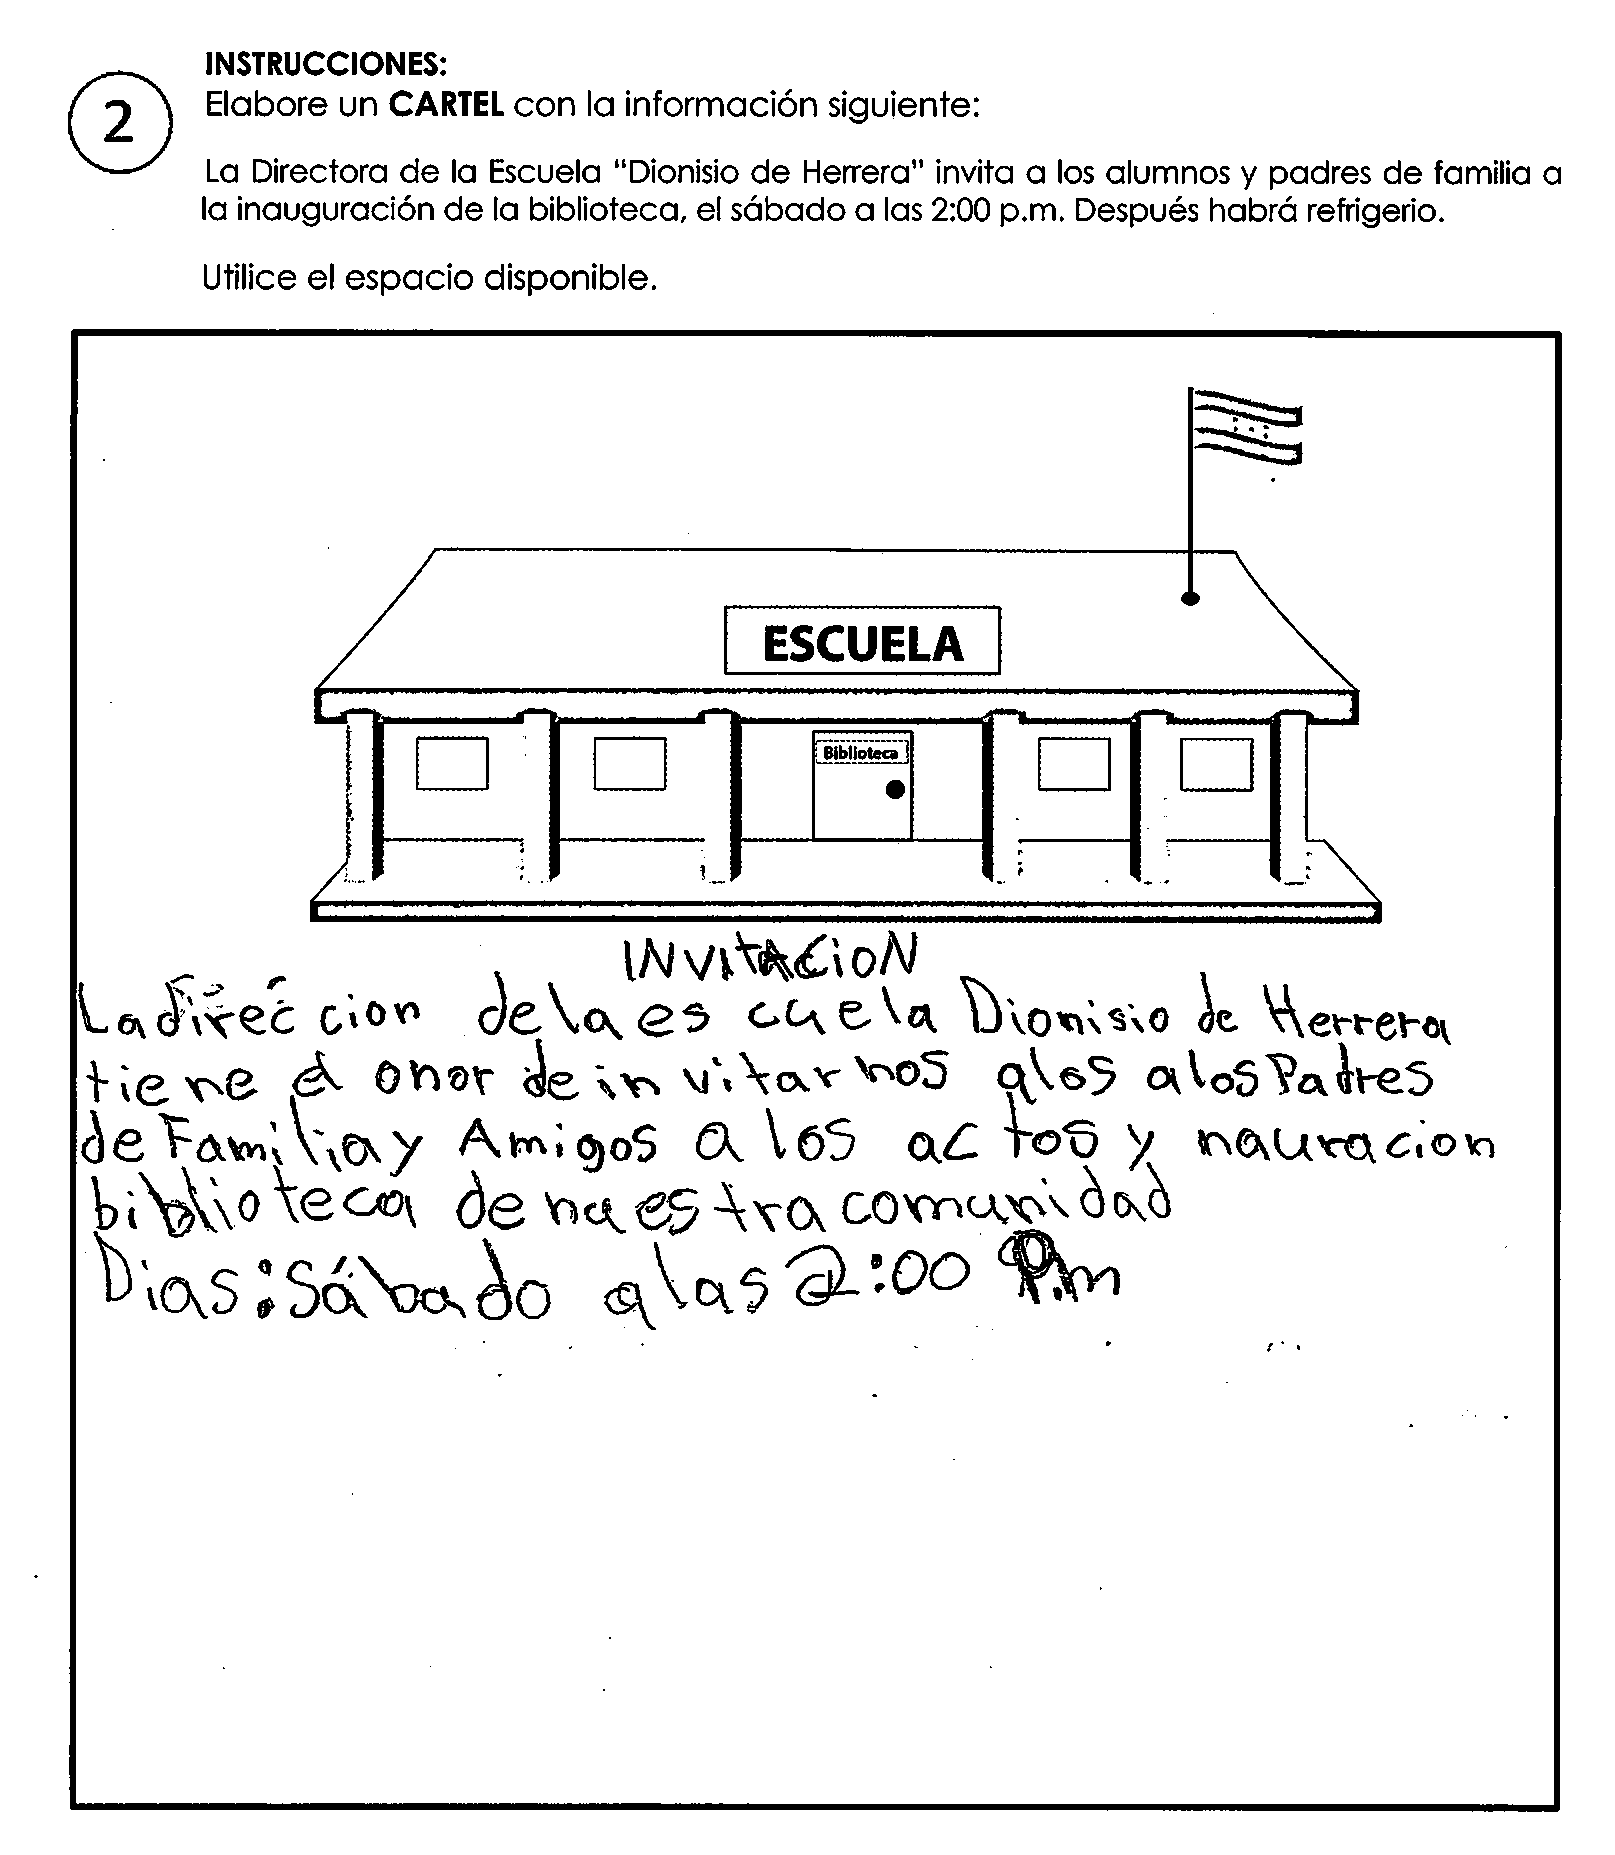 INSTRUCCIONES:
2
Elabore un CARTEL con la información siguiente:
La Directora de la Escuela "Dionisio de Herrera" invita a los alumnos y padres de familia a
la inauguración de la biblioteca, el sábado a las 2:00 p.m. Después habrá refrigerio.
Utilice el espacio disponible.
ESCUELA
Biblioteca
INVITACION
La direc cion de la es cuela Dionisio de Herrera
tiene el onor de in vitar nos alos alos Padres
de Familia y Amigos a los actos y nauracion
biblioteca de nuestra comunidad
Dias: Sábado a las 2:00 P.m